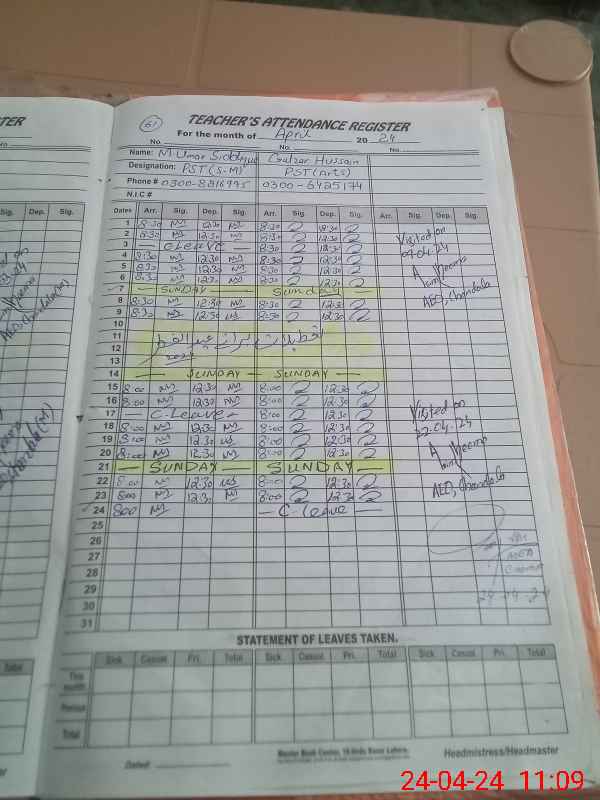 TER
61
TEACHER'S ATTENDANCE REGISTER
For the month of April 2024
No. No. No.
Name: M.Umar Siddique Gulzar Hussain
Designation: PST (S-M) PST (Arts)
Phone # 0300-8216995 0300-6425174
N.I.C #
Sig. Dep. Sig. Dates Arr. Sig. Dep. Sig. Arr. Sig. Dep. Sig. Arr. Sig. Dep. Sig.
1 8:30 12:30 8:30 12:30
2 8:30 12:30 8:30 12:30 Visited on
3 — C.Leave — 8:30 12:30 09.04.24
4 8:30 12:30 8:30 12:30
5 8:30 12:30 8:30 12:30
6 8:30 12:30 8:30 12:30
7 — SUNDAY — Sunday — AEO,
8 8:30 12:30 8:30 12:30
9 8:30 12:30 8:30 12:30
10
11 تعطیلات برائے عید الفطر
12
13
14 — SUNDAY — SUNDAY —
15 8:00 12:30 8:00 12:30
16 8:00 12:30 8:00 12:30
17 — C.Leave — 8:00 12:30 Visited on
18 8:00 12:30 8:00 12:30 22.04.24
19 8:00 12:30 8:00 12:30
20 8:00 12:30 8:00 12:30
21 — SUNDAY — SUNDAY —
22 8:00 12:30 8:00 12:30 AEO,
23 8:00 12:30 8:00 12:30
24 8:00 — C.Leave —
25
26
27
28
29
30 24-04-24
31
STATEMENT OF LEAVES TAKEN.
Total Sick Casual Pri. Total Sick Casual Pri. Total Sick Casual Pri. Total
This month
Previous
Total
Dated: Master Book Center, 18-Urdu Bazar Lahore. Headmistress/Headmaster
24-04-24 11:09